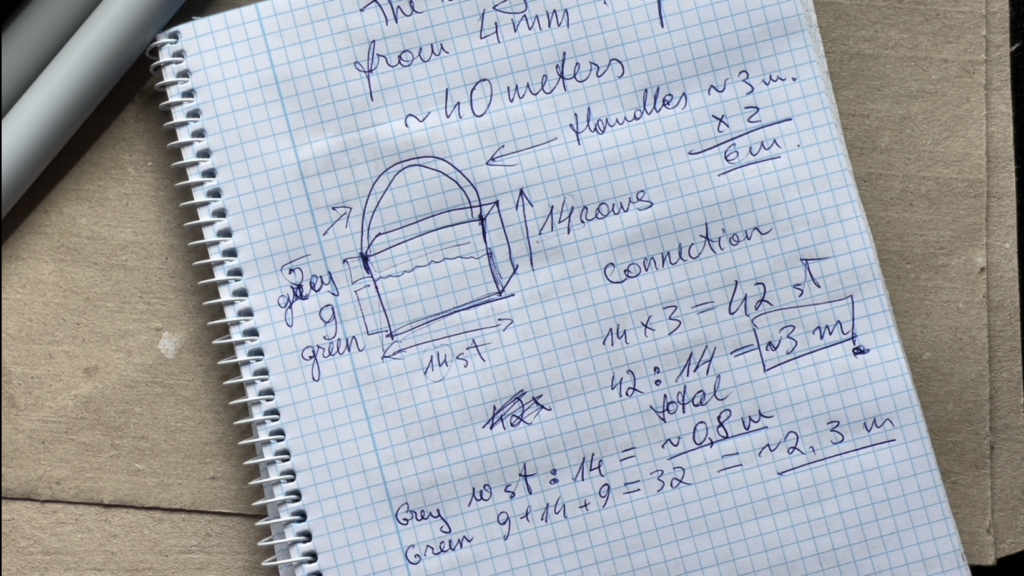 The
from 4mm
~40 meters
Handles ~3 m.
x 2
6 m.
14 rows
5
grey
9
green
14 st
connection
14 x 3 = 42 st
42 : 14 = ~3 m.
total
Grey 10 st : 14 = ~0,8 m
Green 9+14+9 = 32 = ~2,3 m